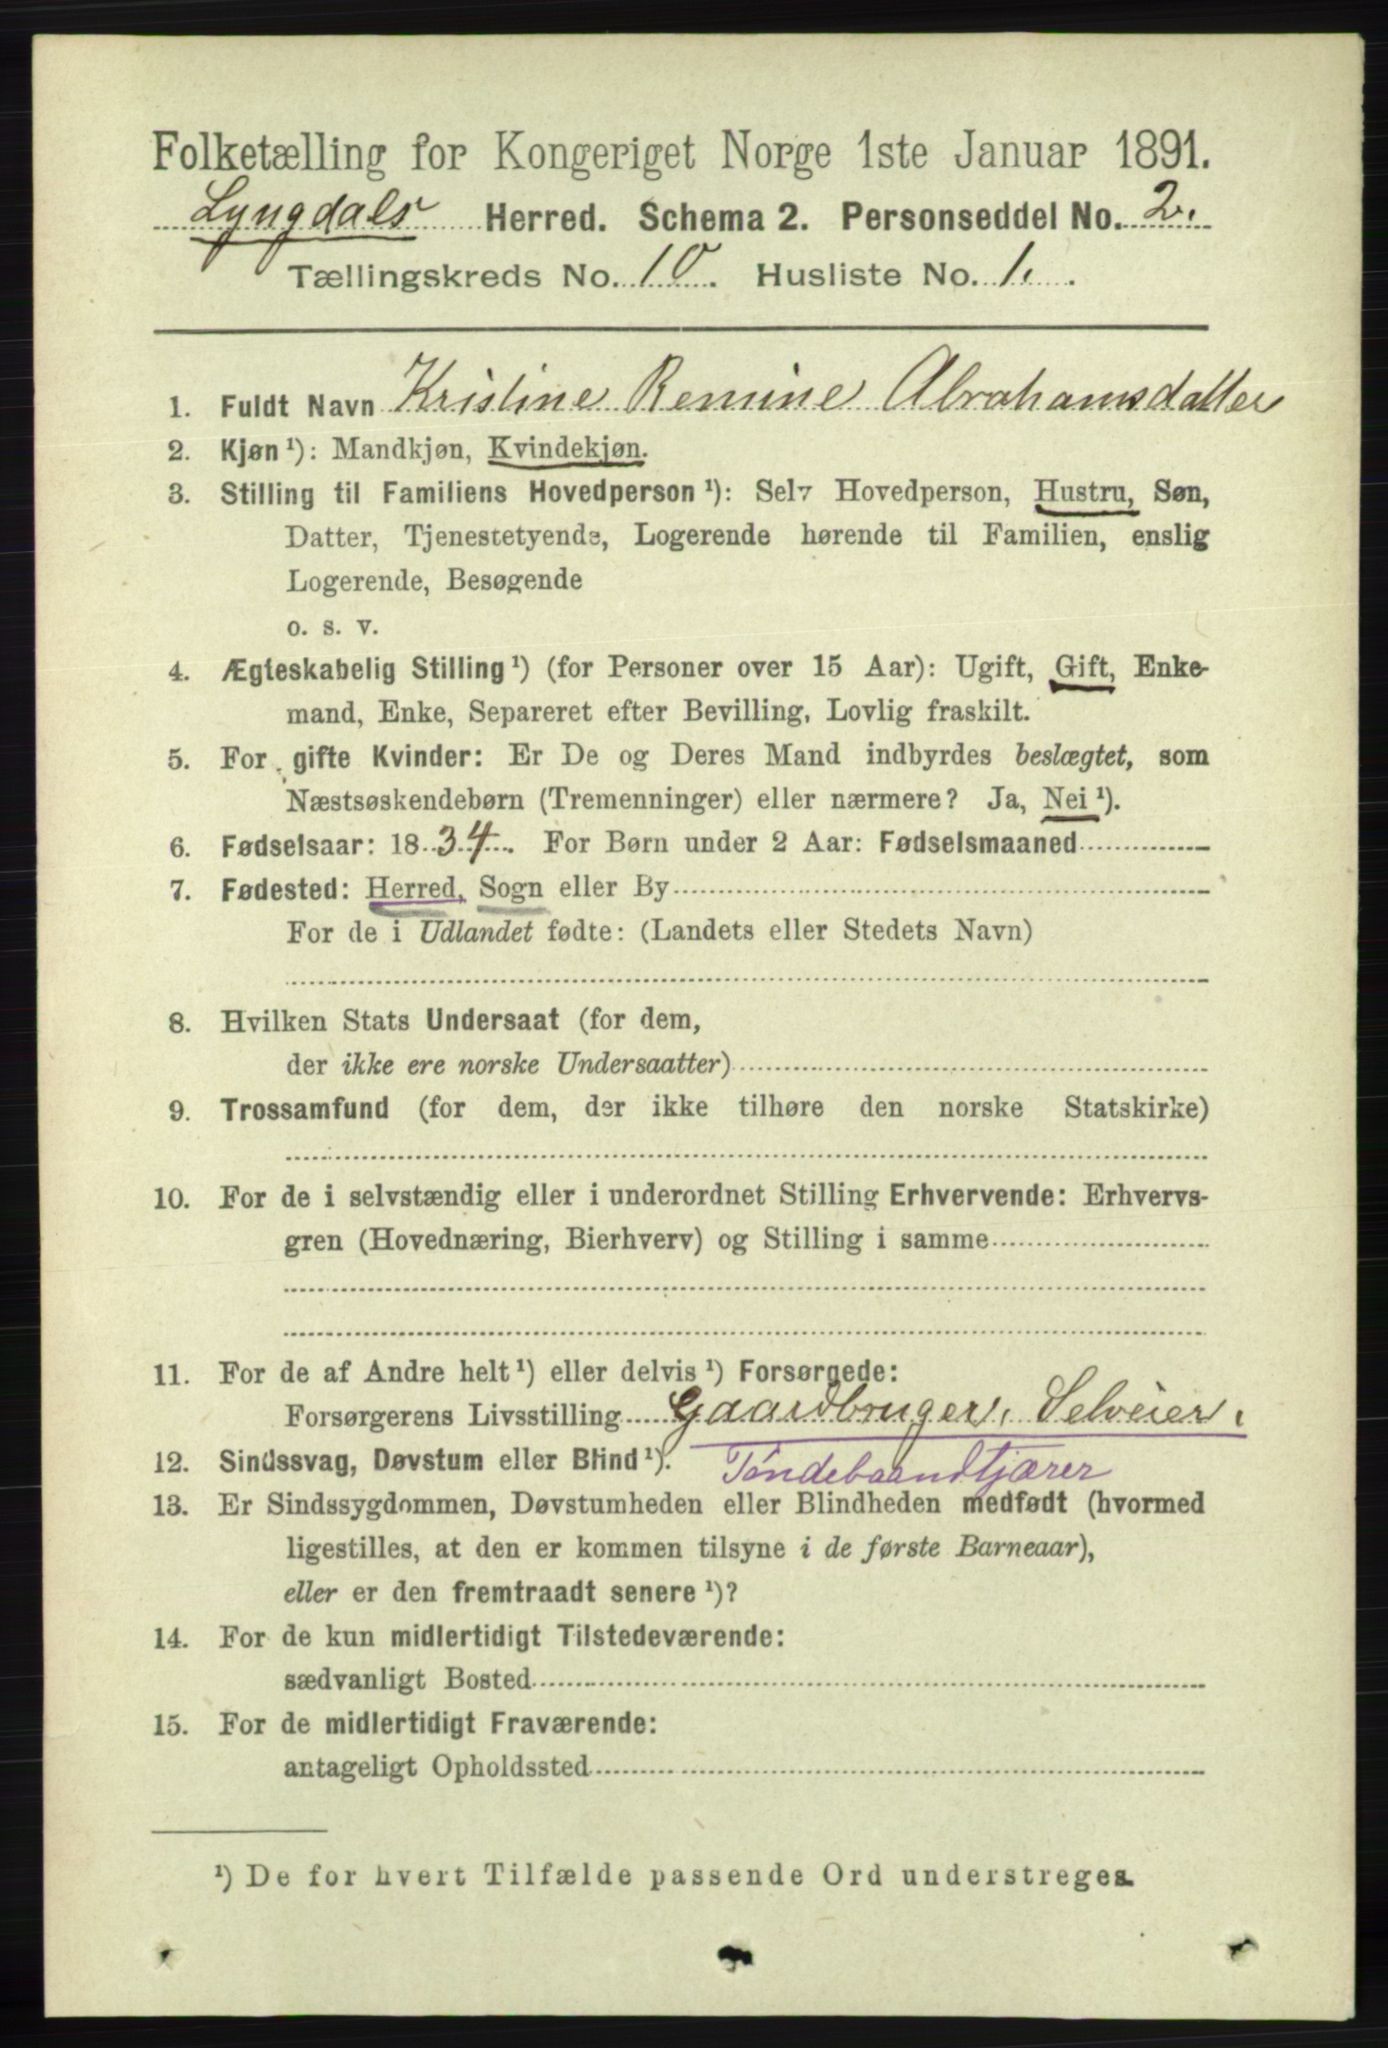 Folketælling for Kongeriget Norge 1ste Januar 1891.
Lyngdals Herred. Schema 2. Personseddel No. 2.
Tællingskreds No. 10. Husliste No. 1.
1. Fuldt Navn Kristine Remine Abrahamsdatter
2. Kjøn ¹): Mandkjøn, Kvindekjøn.
3. Stilling til Familiens Hovedperson ¹): Selv Hovedperson, Hustru, Søn,
Datter, Tjenestetyende, Logerende hørende til Familien, enslig
Logerende, Besøgende
o. s. v.
4. Ægteskabelig Stilling ¹) (for Personer over 15 Aar): Ugift, Gift, Enke-
mand, Enke, Separeret efter Bevilling, Lovlig fraskilt.
5. For gifte Kvinder: Er De og Deres Mand indbyrdes beslægtet, som
Næstsøskendebørn (Tremenninger) eller nærmere? Ja, Nei ¹).
6. Fødselsaar: 1834. For Børn under 2 Aar: Fødselsmaaned
7. Fødested: Herred, Sogn eller By
For de i Udlandet fødte: (Landets eller Stedets Navn)
8. Hvilken Stats Undersaat (for dem,
der ikke ere norske Undersaatter)
9. Trossamfund (for dem, der ikke tilhøre den norske Statskirke)
10. For de i selvstændig eller i underordnet Stilling Erhvervende: Erhvervs-
gren (Hovednæring, Bierhverv) og Stilling i samme
11. For de af Andre helt ¹) eller delvis ¹) Forsørgede:
Forsørgerens Livsstilling Gaardbruger, Selveier,
12. Sindssvag, Døvstum eller Blind ¹). Tøndebaandtjærer
13. Er Sindssygdommen, Døvstumheden eller Blindheden medfødt (hvormed
ligestilles, at den er kommen tilsyne i de første Barneaar),
eller er den fremtraadt senere ¹)?
14. For de kun midlertidigt Tilstedeværende:
sædvanligt Bosted
15. For de midlertidigt Fraværende:
antageligt Opholdssted
¹) De for hvert Tilfælde passende Ord understreges.